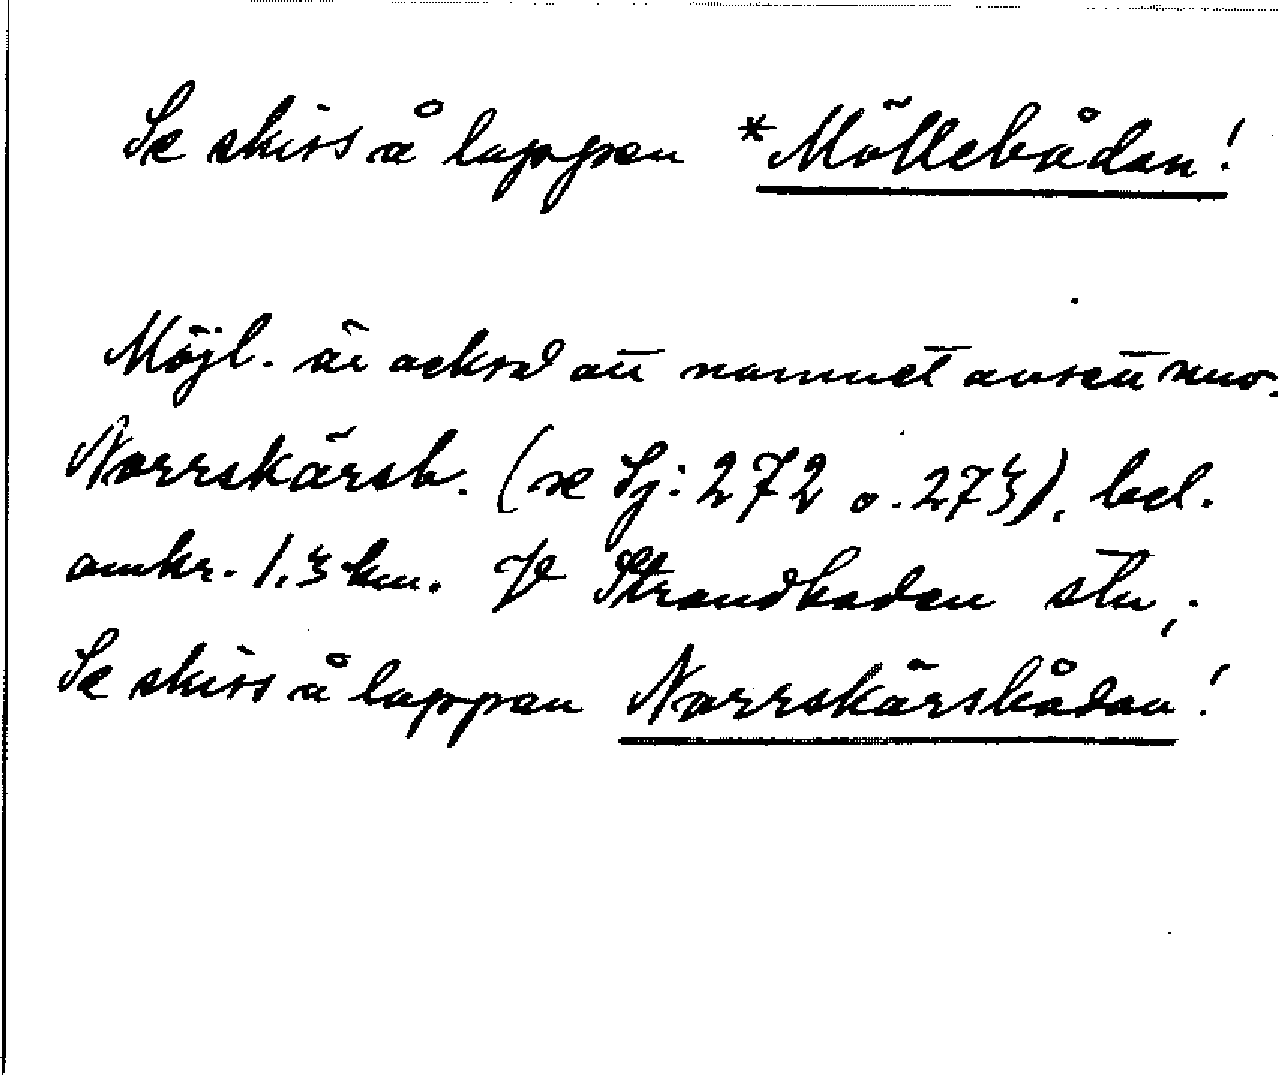 Se skiss å lappen *Möllebådan!
Möjl. är också att namnet avsett nuv.
Norrskärsb. (se Sj: 272 o. 273), bel.
omkr. 1,3 km. Strandbaden stn;
Se skiss å lappen Norrskärsbådan!